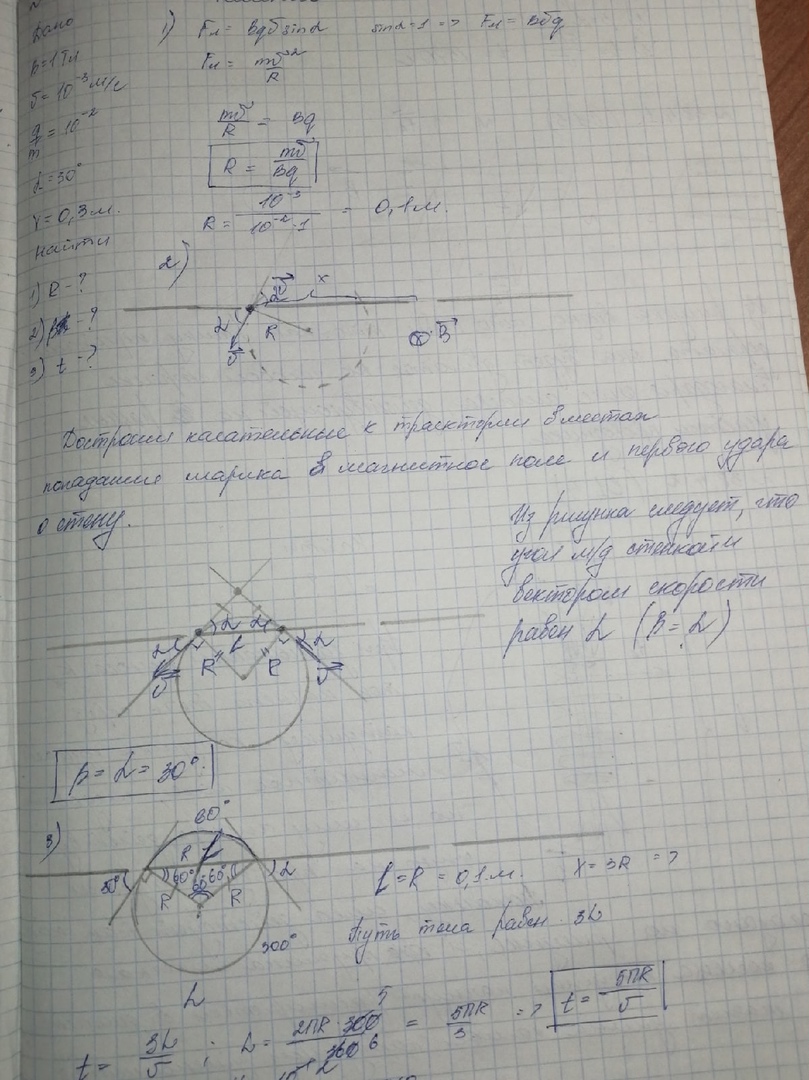 Дано
B=1Тл
v=10⁻³м/с
q/m=10⁻²
α=30°
x=0,3м.
Найти
1) R-?
2) β-?
3) t-?
1) Fл= Bqv sinα sinα=1 => Fл= Bvq
Fл= mv²/R
mv/R = Bq
R = mv/Bq
R= 10⁻³/10⁻²·1 = 0,1м.
2)
v α x
α R B
v
Достроим касательные к траектории в местах
попадания шарика в магнитное поле и первого удара
о стену.
Из рисунка следует, что
угол м/д стенкой и
вектором скорости
равен α (β=α)
α α α α
R R
v v
β=α=30°
3) 60°
R
30° 60° 60° 60° α
R R
300°
L
l=R=0,1м. x=3R =>
Путь тела равен 3L
t= 3L/v ; L= 2πR·300/360 = 5πR/3 => t= 5πR/v
5
6